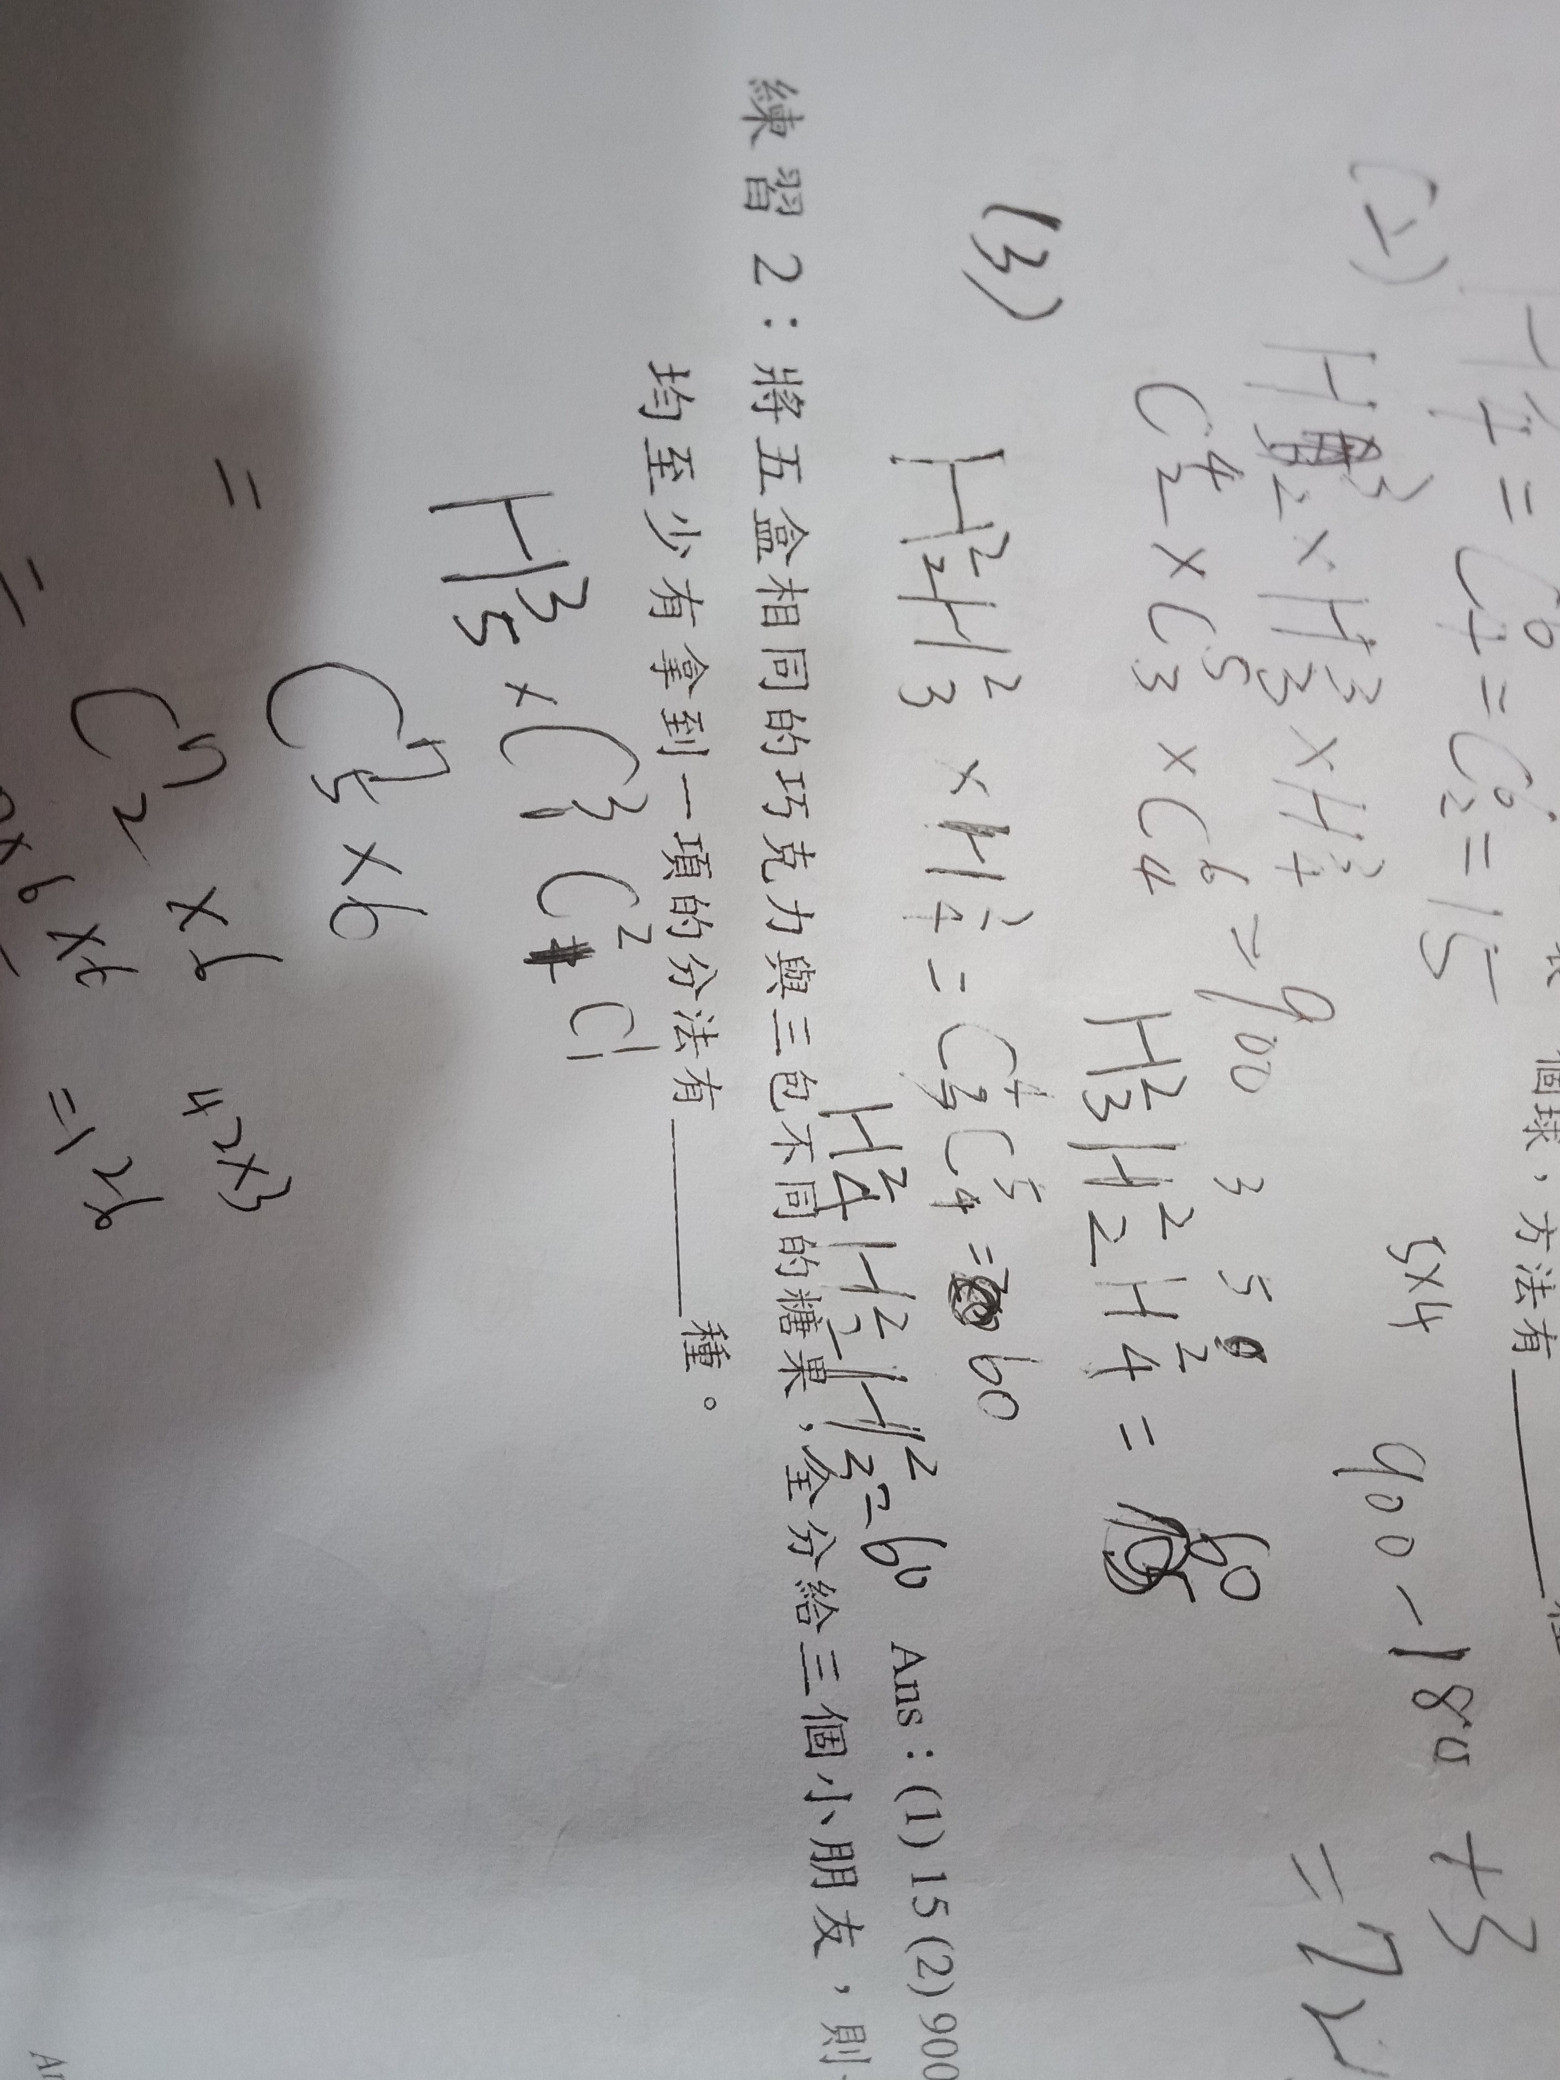 個球，方法有
H4 = C⁶₄ = C⁶₂ = 15
5×4
(2) H³₂ × H³₃ × H³₄
900 - 180 + 3
C⁴₂ × C⁵₃ × C⁶₄ = 900
3 5
= 72
H²₃ H²₂ H²₄ = 60
(3) H²₂ H²₃ × H²₄ = C⁴₃ C⁵₄ = 60
H²₄ H²₂ H²₃ = 60
Ans：(1) 15 (2) 900
練習 2：將五盒相同的巧克力與三包不同的糖果，全分給三個小朋友，則
均至少有拿到一項的分法有______種。
H³₅ × C³₁ C² C¹
C⁷₅ × 6
= C⁷₂ × 6
42×3
= ×6 = 126